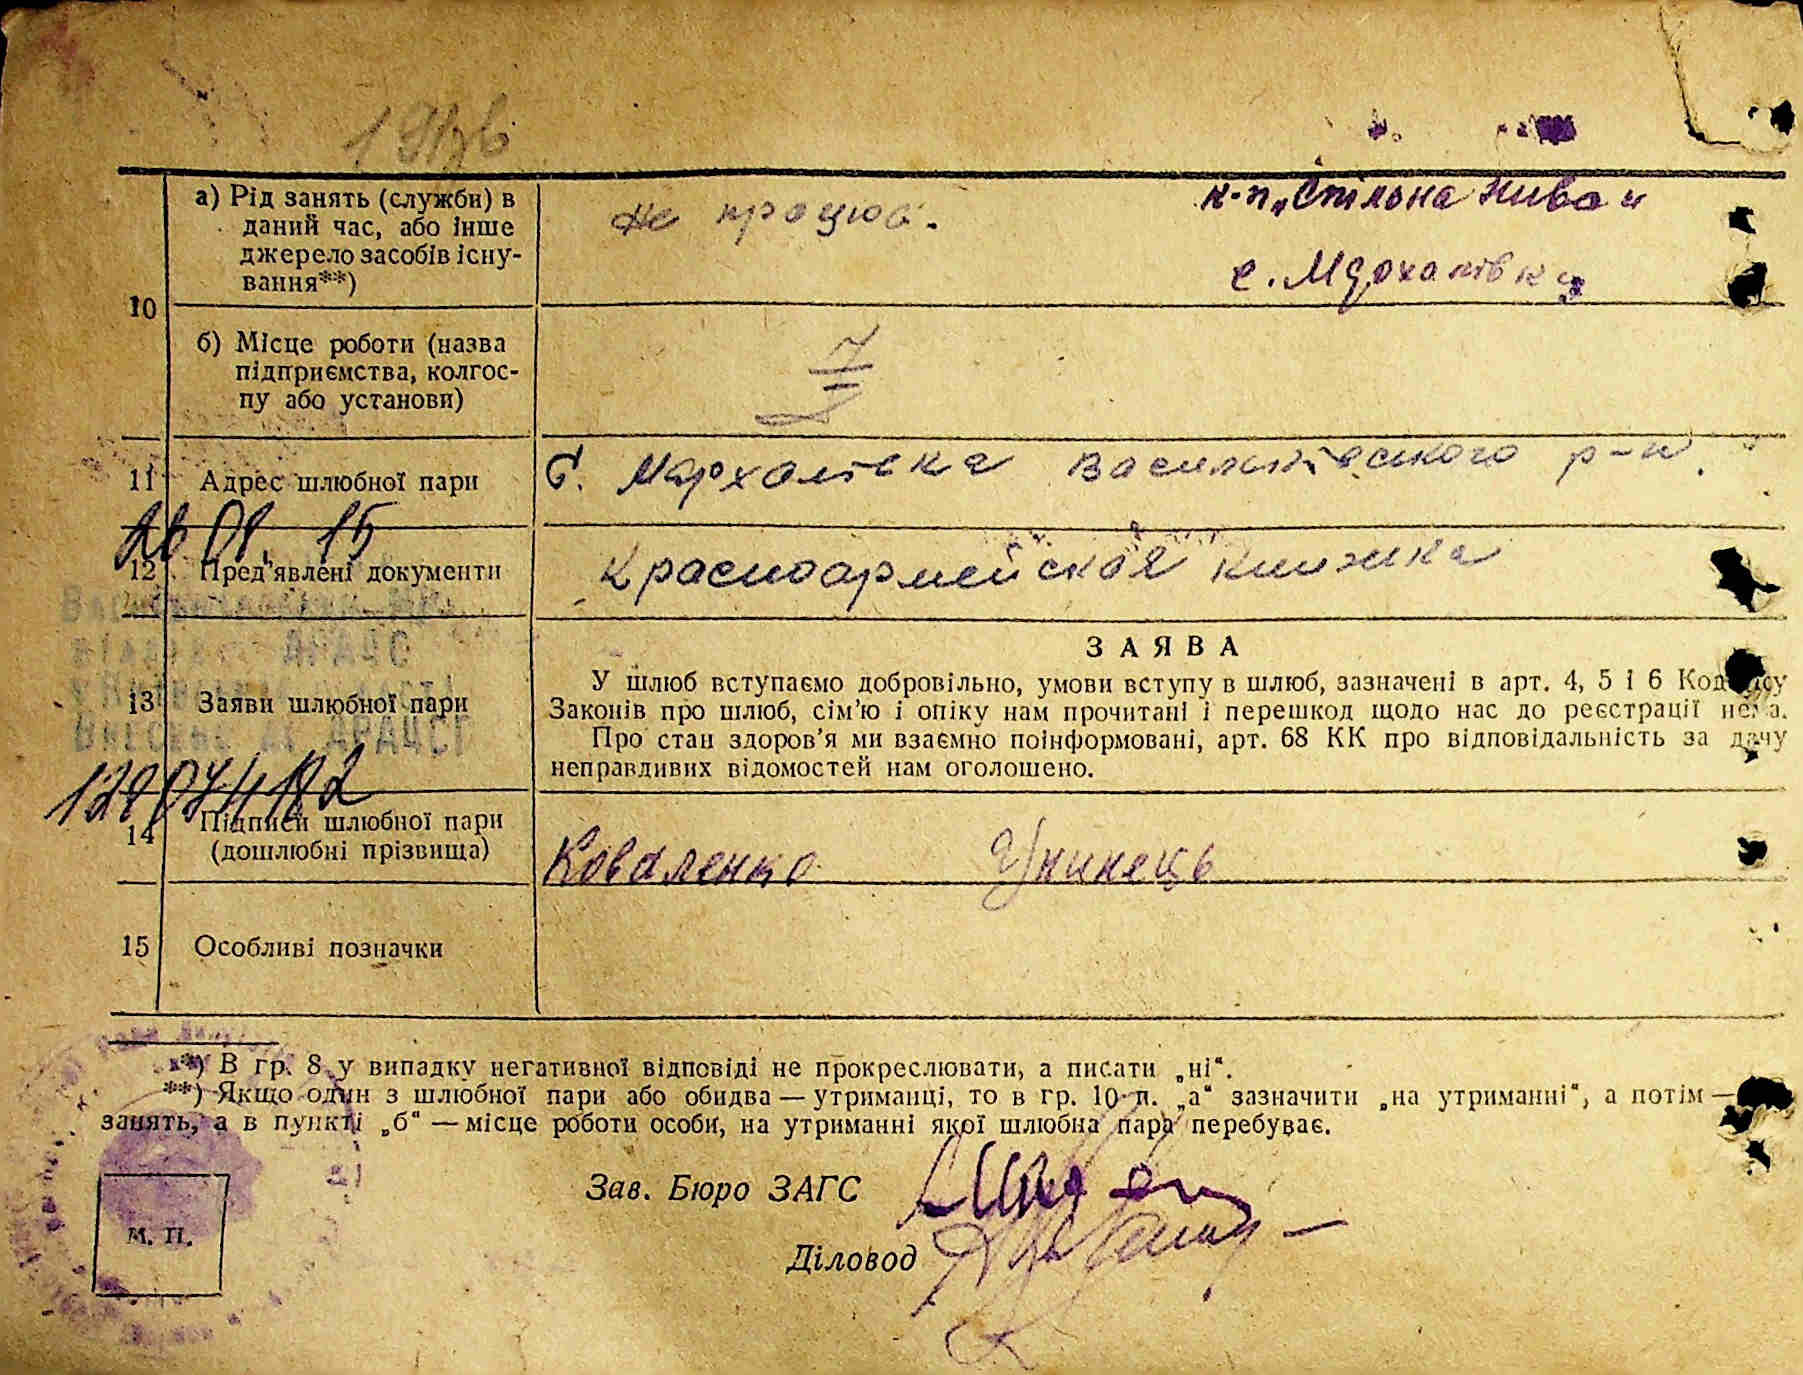 а) Рід занять (служби) в
даний час, або інше
джерело засобів існу-
вання**)
не працює.
к-п „Спільна Нива"
с. Мархалівка
10
б) Місце роботи (назва
підприємства, колгос-
пу або установи)
11 Адрес шлюбної пари
с. Мархалівка Васильківського р-н.
26 01 15
12 Пред'явлені документи
Красноармейская книжка
ЗАЯВА
13 Заяви шлюбної пари
У шлюб вступаємо добровільно, умови вступу в шлюб, зазначені в арт. 4, 5 і 6 Кодексу
Законів про шлюб, сім'ю і опіку нам прочитані і перешкод щодо нас до реєстрації нема.
Про стан здоров'я ми взаємно поінформовані, арт. 68 КК про відповідальність за дачу
неправдивих відомостей нам оголошено.
14 Підписи шлюбної пари
(дошлюбні прізвища)
Коваленко
15 Особливі позначки
*) В гр. 8 у випадку негативної відповіді не прокреслювати, а писати „ні".
**) Якщо один з шлюбної пари або обидва — утриманці, то в гр. 10 п. „а" зазначити „на утриманні", а потім —
занять, а в пункті „б" — місце роботи особи, на утриманні якої шлюбна пара перебуває.
Зав. Бюро ЗАГС
Діловод
М. П.